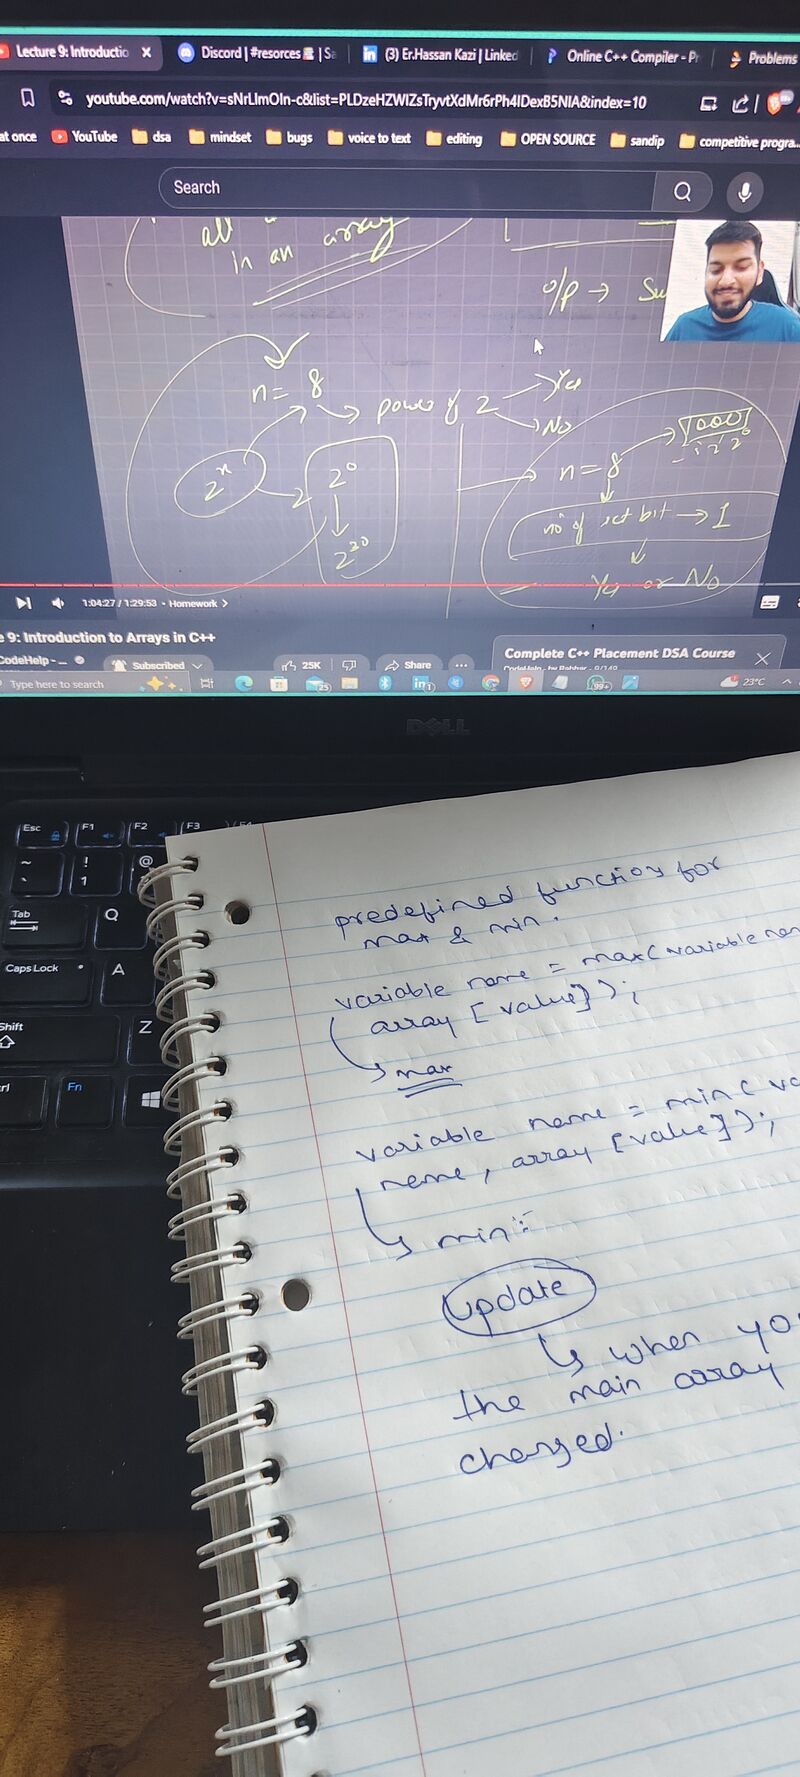 Lecture 9: Introductio
Discord | #resorces | Sa
(3) Er.Hassan Kazi | Linked
Online C++ Compiler - Pr
Problems
youtube.com/watch?v=sNrLlmOIn-c&list=PLDzeHZWIZsTryvtXdMr6rPh4IDexB5NIA&index=10
at once
YouTube
dsa
mindset
bugs
voice to text
editing
OPEN SOURCE
sandip
competitive progra...
Search
all
in an array
o/p → Su
n = 8 → power of 2
Yes
No
2^n
2^0
2^30
n = 8
1000
no of set bit → 1
Yes or No
1:04:27 / 1:29:53 • Homework >
e 9: Introduction to Arrays in C++
CodeHelp - ...
Subscribed
25K
Share
Complete C++ Placement DSA Course
CodeHelp - by Babbar - 9/149
Type here to search
25
1
99+
23°C
DELL
Esc
F1
F2
F3
F4
~
`
!
1
@
Tab
Q
Caps Lock
A
Shift
Z
trl
Fn
predefined function for
max & min.
variable name = max( variable nam
array [value]);
max
variable name = min( va
name, array [value]);
min
update
when yo
the main array
changed.